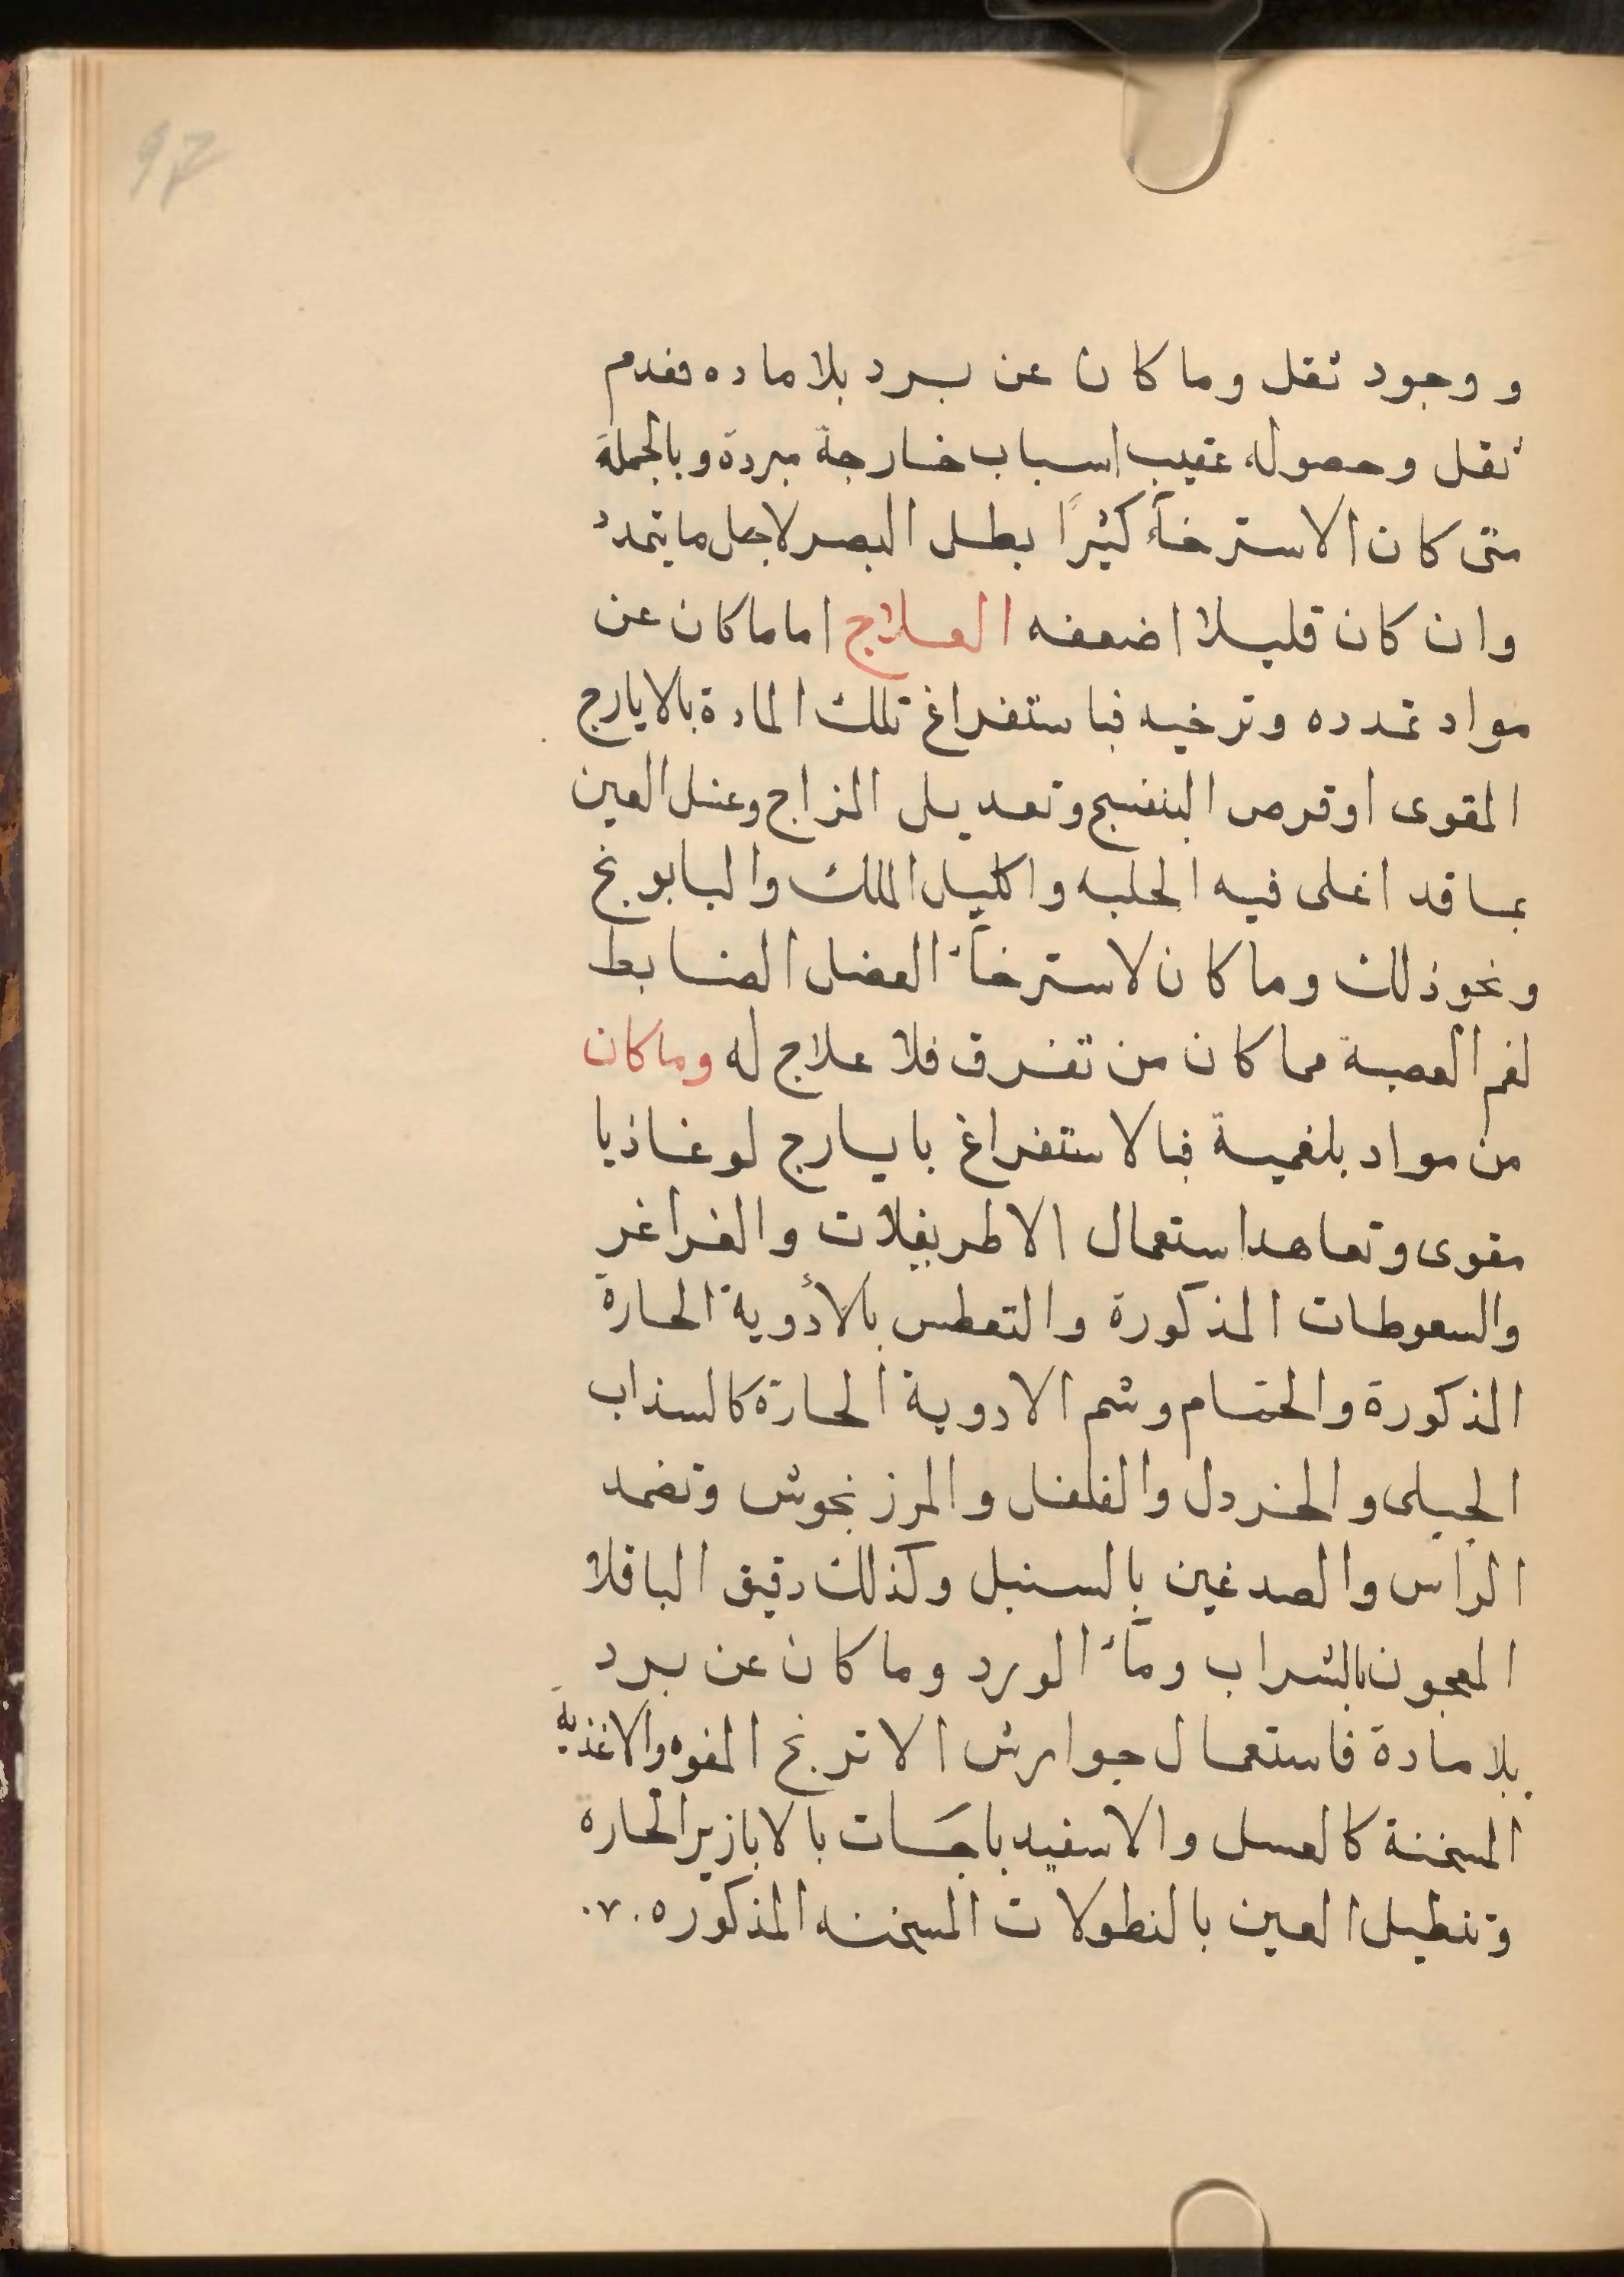 97
و وجود ثقل وما كان عن برد بلا ماده فعدم
ثقل وحصوله عقيب اسباب خارجة مبردة وبالجملة
متى كان الاسترخآء كثيرًا بطل البصر لاجل ما يتمدد
وان كان قليلا اضعفه العلاج اما ما كان عن
مواد تمدده وترخيه فباستفراغ تلك المادة بالايارج
المقوى او قرص البنفسج وتعديل المزاج وغسل العين
بما قد اغلى فيه الحلبه واكليل الملك والبابونج
ونحو ذلك وما كان لاسترخآء العضل الضابط
لفم العصبة مما كان من تفرق فلا علاج له وما كان
من مواد بلغمية فبالاستفراغ بايارج لوغاذيا
مقوى وتعاهد استعمال الاطريفلات والغراغر
والسعوطات المذكورة والتعطس بالأدوية الحارة
المذكورة والحمام وشم الادوية الحارة كالسذاب
الجبلى والخردل والفلفل والمرزنجوش وتضمد
الراس والصدغين بالسنبل وكذلك دقيق الباقلا
المعجون بالشراب ومآء الورد وما كان عن برد
بلا مادة فاستعمال جوارش الاترنج المفوه والاغذية
المسخنة كالعسل والاسفيدباجات بالابازير الحاره
وتنطيل العين بالنطولات المسخنه المذكوره